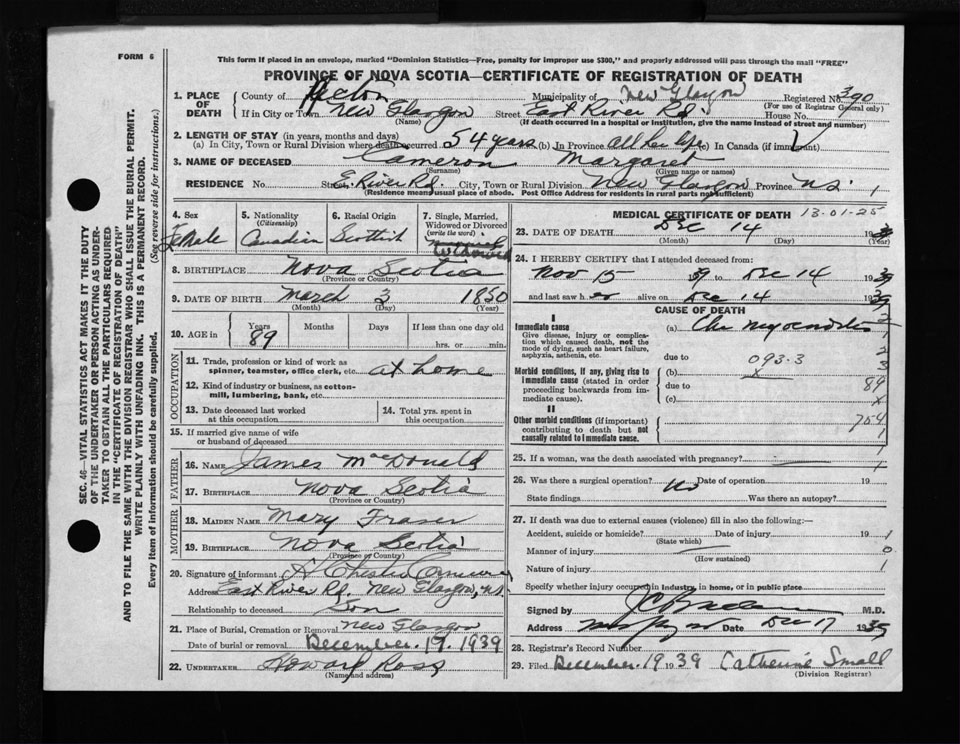 FORM 6
This form if placed in an envelope, marked "Dominion Statistics—Free, penalty for improper use $300," and properly addressed will pass through the mail "FREE"
PROVINCE OF NOVA SCOTIA—CERTIFICATE OF REGISTRATION OF DEATH
SEC. 46— VITAL STATISTICS ACT MAKES IT THE DUTY
OF THE UNDERTAKER OR PERSON ACTING AS UNDER-
TAKER TO OBTAIN ALL THE PARTICULARS REQUIRED
IN THE "CERTIFICATE OF REGISTRATION OF DEATH"
AND TO FILE THE SAME WITH THE DIVISION REGISTRAR WHO SHALL ISSUE THE BURIAL PERMIT.
WRITE PLAINLY WITH UNFADING INK. THIS IS A PERMANENT RECORD.
Every item of information should be carefully supplied. (See reverse side for instructions.)
1. PLACE OF DEATH County of Pictou Municipality of New Glasgow Registered No. 390
(For use of Registrar General only)
If in City or Town New Glasgow Street East River Rd. House No.
(Name) (If death occurred in a hospital or institution, give the name instead of street and number)
2. LENGTH OF STAY (in years, months and days)
(a) In City, Town or Rural Division where death occurred 54 years (b) In Province all her life (c) In Canada (if immigrant)
3. NAME OF DECEASED Cameron Margaret
(Surname) (Given name or names)
RESIDENCE No. Street E. River Rd. City, Town or Rural Division New Glasgow Province N.S. 1
(Residence means usual place of abode. Post Office Address for residents in rural parts not sufficient)
4. Sex Female
5. Nationality (Citizenship) Canadian
6. Racial Origin Scottish
7. Single, Married, Widowed or Divorced (write the word) Widowed
8. BIRTHPLACE Nova Scotia
(Province or Country)
9. DATE OF BIRTH March 3 1850
(Month) (Day) (Year)
10. AGE in Years 89 Months Days If less than one day old
hrs. or min.
OCCUPATION
11. Trade, profession or kind of work as spinner, teamster, office clerk, etc. at home
12. Kind of industry or business, as cotton-mill, lumbering, bank, etc.
13. Date deceased last worked at this occupation
14. Total yrs. spent in this occupation
15. If married give name of wife or husband of deceased
FATHER
16. NAME James MacDonald
17. BIRTHPLACE Nova Scotia
(Province or Country)
MOTHER
18. MAIDEN NAME Mary Fraser
19. BIRTHPLACE Nova Scotia
(Province or Country)
20. Signature of informant H Chester Cameron
Address East River Rd. New Glasgow, N.S.
Relationship to deceased Son
21. Place of Burial, Cremation or Removal New Glasgow
Date of burial or removal December. 17. 1939
22. UNDERTAKER Howard Ross
(Name and address)
MEDICAL CERTIFICATE OF DEATH 13-01-25
23. DATE OF DEATH Dec 14 1939
(Month) (Day) (Year)
24. I HEREBY CERTIFY that I attended deceased from:
Nov 15 39 to Dec 14 1939
and last saw her alive on Dec 14 1939
CAUSE OF DEATH
I
Immediate cause
Give disease, injury or complication which caused death, not the mode of dying, such as heart failure, asphyxia, asthenia, etc.
(a) Chr myocarditis
due to 093-3
Morbid conditions, if any, giving rise to immediate cause (stated in order proceeding backwards from immediate cause).
(b) x
due to 89
(c) x
II
Other morbid conditions (if important) contributing to death but not causally related to immediate cause. 754
25. If a woman, was the death associated with pregnancy?
26. Was there a surgical operation? No Date of operation 19
State findings Was there an autopsy?
27. If death was due to external causes (violence) fill in also the following:—
Accident, suicide or homicide? Date of injury 19
(State which)
Manner of injury
(How sustained)
Nature of injury
Specify whether injury occurred in industry, in home, or in public place
Signed by M.D.
Address Date Dec 17 1939
28. Registrar's Record Number
29. Filed December. 19 1939 Catherine Small
(Division Registrar)